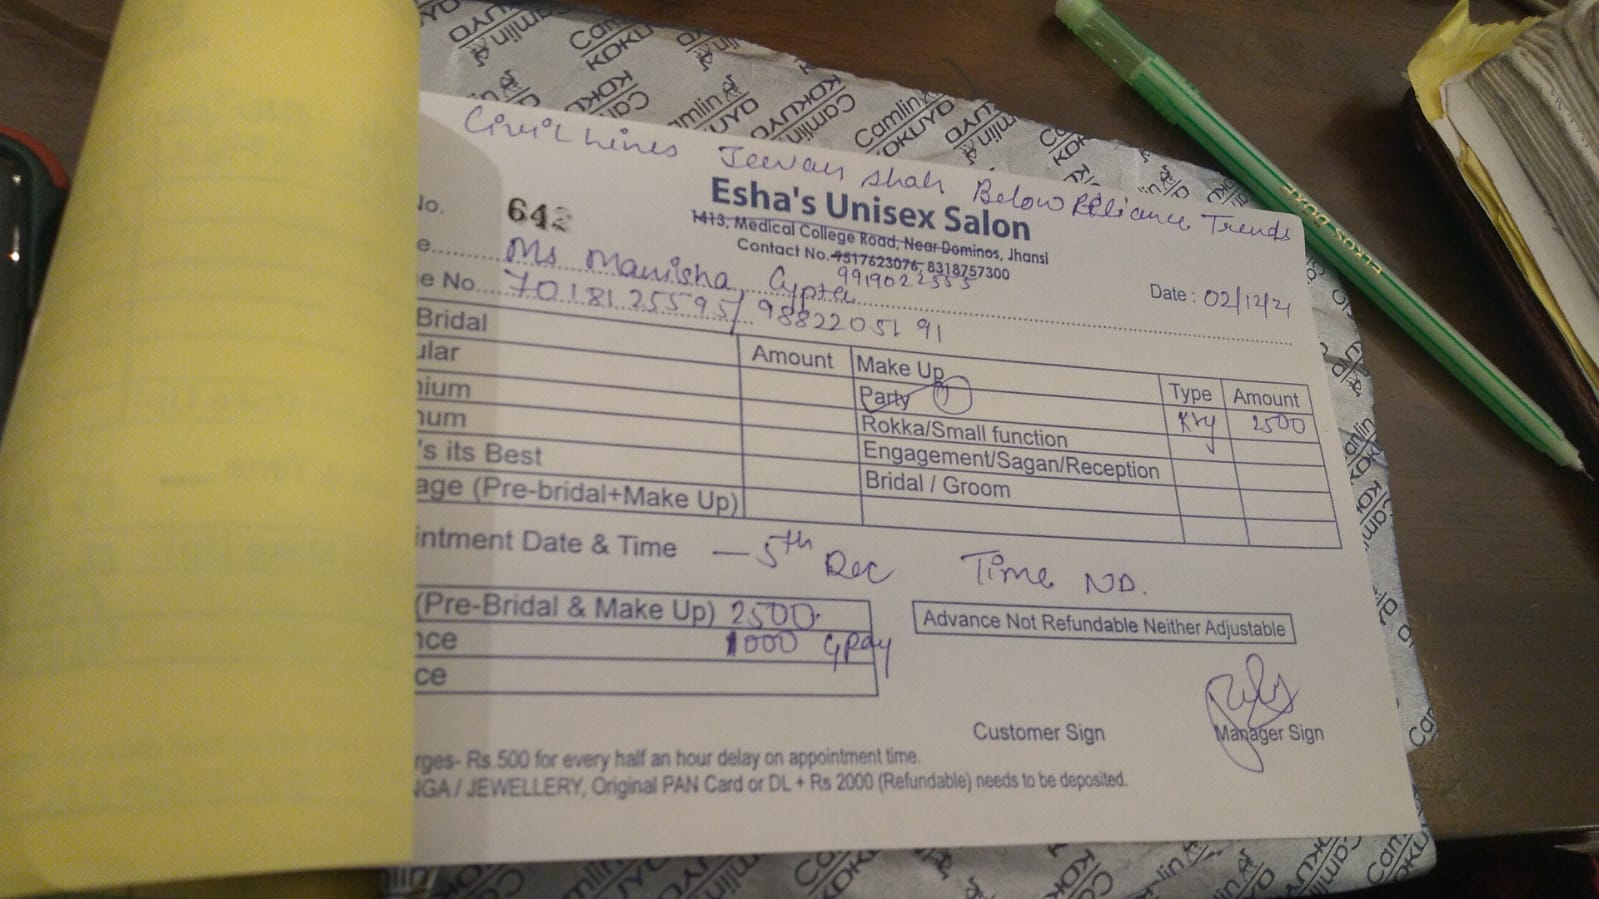 Civil Lines Jeevan Shah Below Reliance Trends
No. 642
Esha's Unisex Salon
1413, Medical College Road, Near Dominos, Jhansi
Contact No. 9517623076, 8318757300
9919022555
Ms Manisha Gypta
Date : 02/12/21
e No. 7018125595/ 9882205191
Bridal Amount Make Up Type Amount
ular Party 1 Kry 2500
nium Rokka/Small function
num Engagement/Sagan/Reception
's its Best Bridal / Groom
age (Pre-bridal+Make Up)
intment Date & Time — 5th Dec Time ND.
(Pre-Bridal & Make Up) 2500
nce 1000 Gpay
ce
Advance Not Refundable Neither Adjustable
Customer Sign Manager Sign
rges- Rs.500 for every half an hour delay on appointment time.
NGA / JEWELLERY, Original PAN Card or DL + Rs 2000 (Refundable) needs to be deposited.
Camlin
KOKUYO